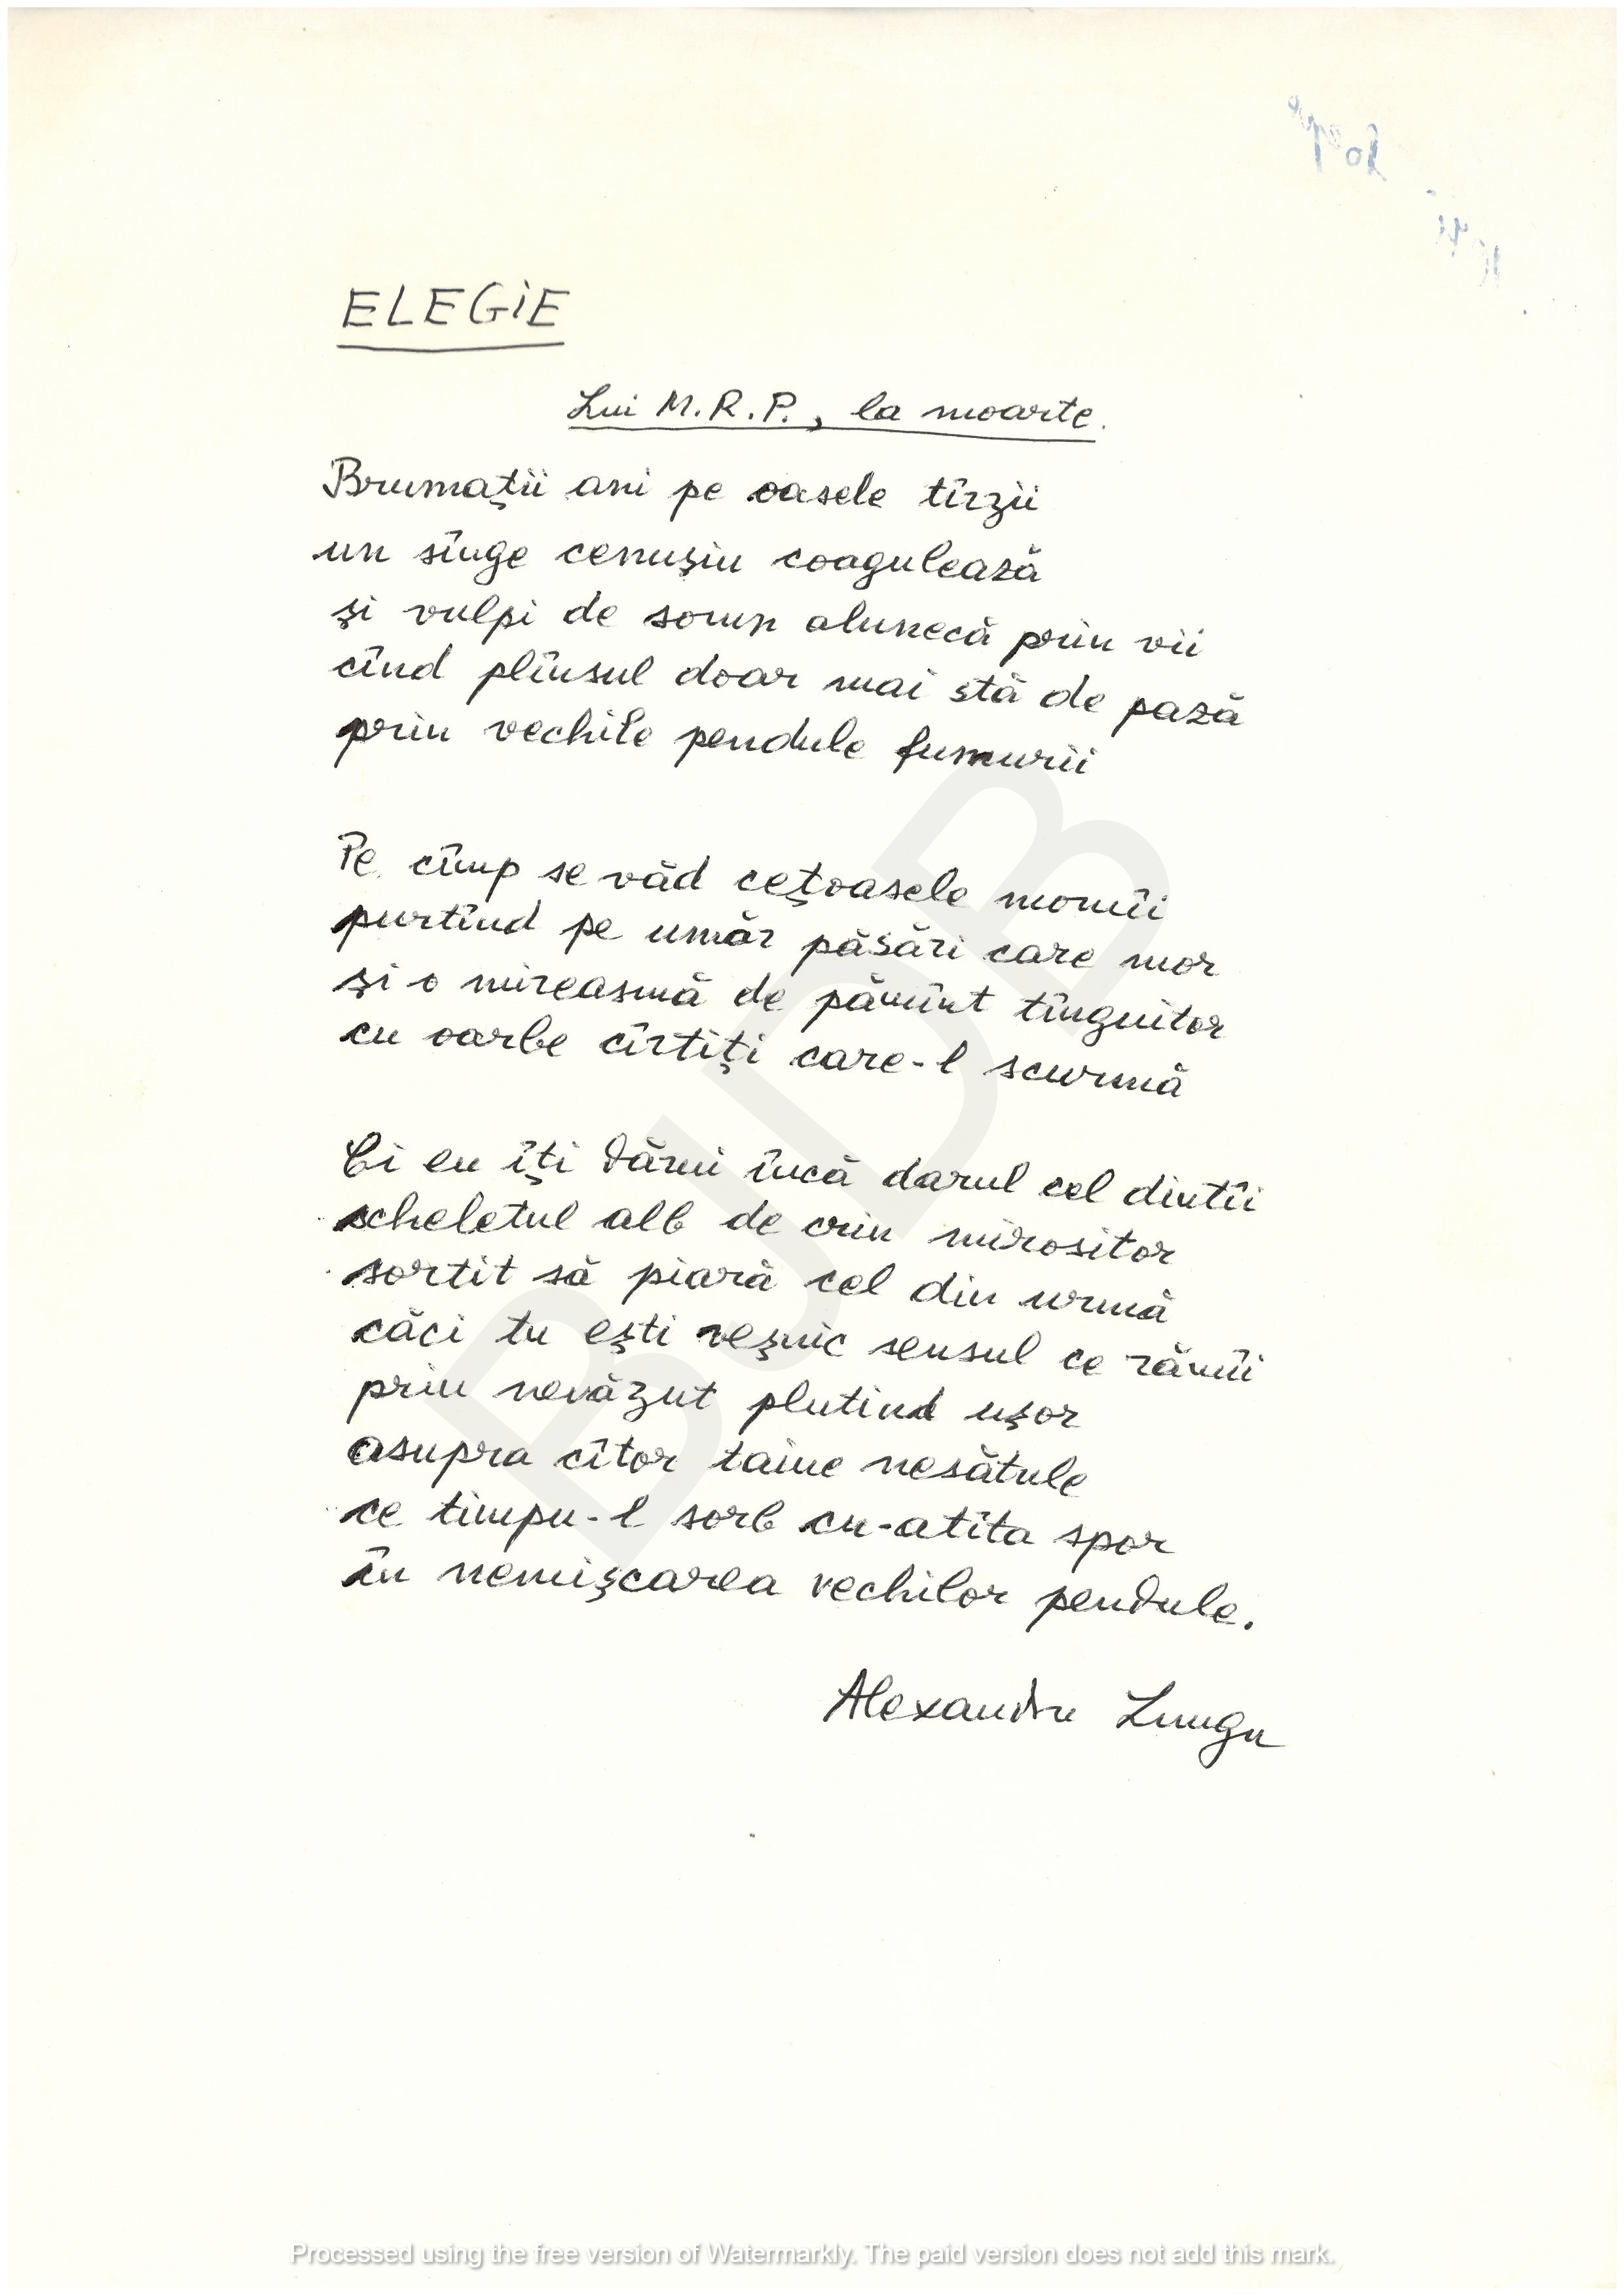 ELEGIE
Lui M.R.P., la moarte.
Brumaţii ani pe oasele tîrzii
un sînge cenuşiu coagulează
şi vulpi de somn alunecă prin vii
cînd plînsul doar mai stă de pază
prin vechile pendule fumurii
Pe cîmp se văd ceţoasele momîi
purtînd pe umăr păsări care mor
şi o mireasmă de pămînt tînguitor
cu oarbe cîrtiţi care-l scurmă
Ci eu îţi dărui încă darul cel dintîi
scheletul alb de crin mirositor
sortit să piară cel din urmă
căci tu eşti veşnic sensul ce rămîi
prin nevăzut plutind uşor
asupra cîtor taine nesătule
ce timpu-l sorb cu-atîta spor
în nemişcarea vechilor pendule.
Alexandru Lungu
BJDB
Processed using the free version of Watermarkly. The paid version does not add this mark.